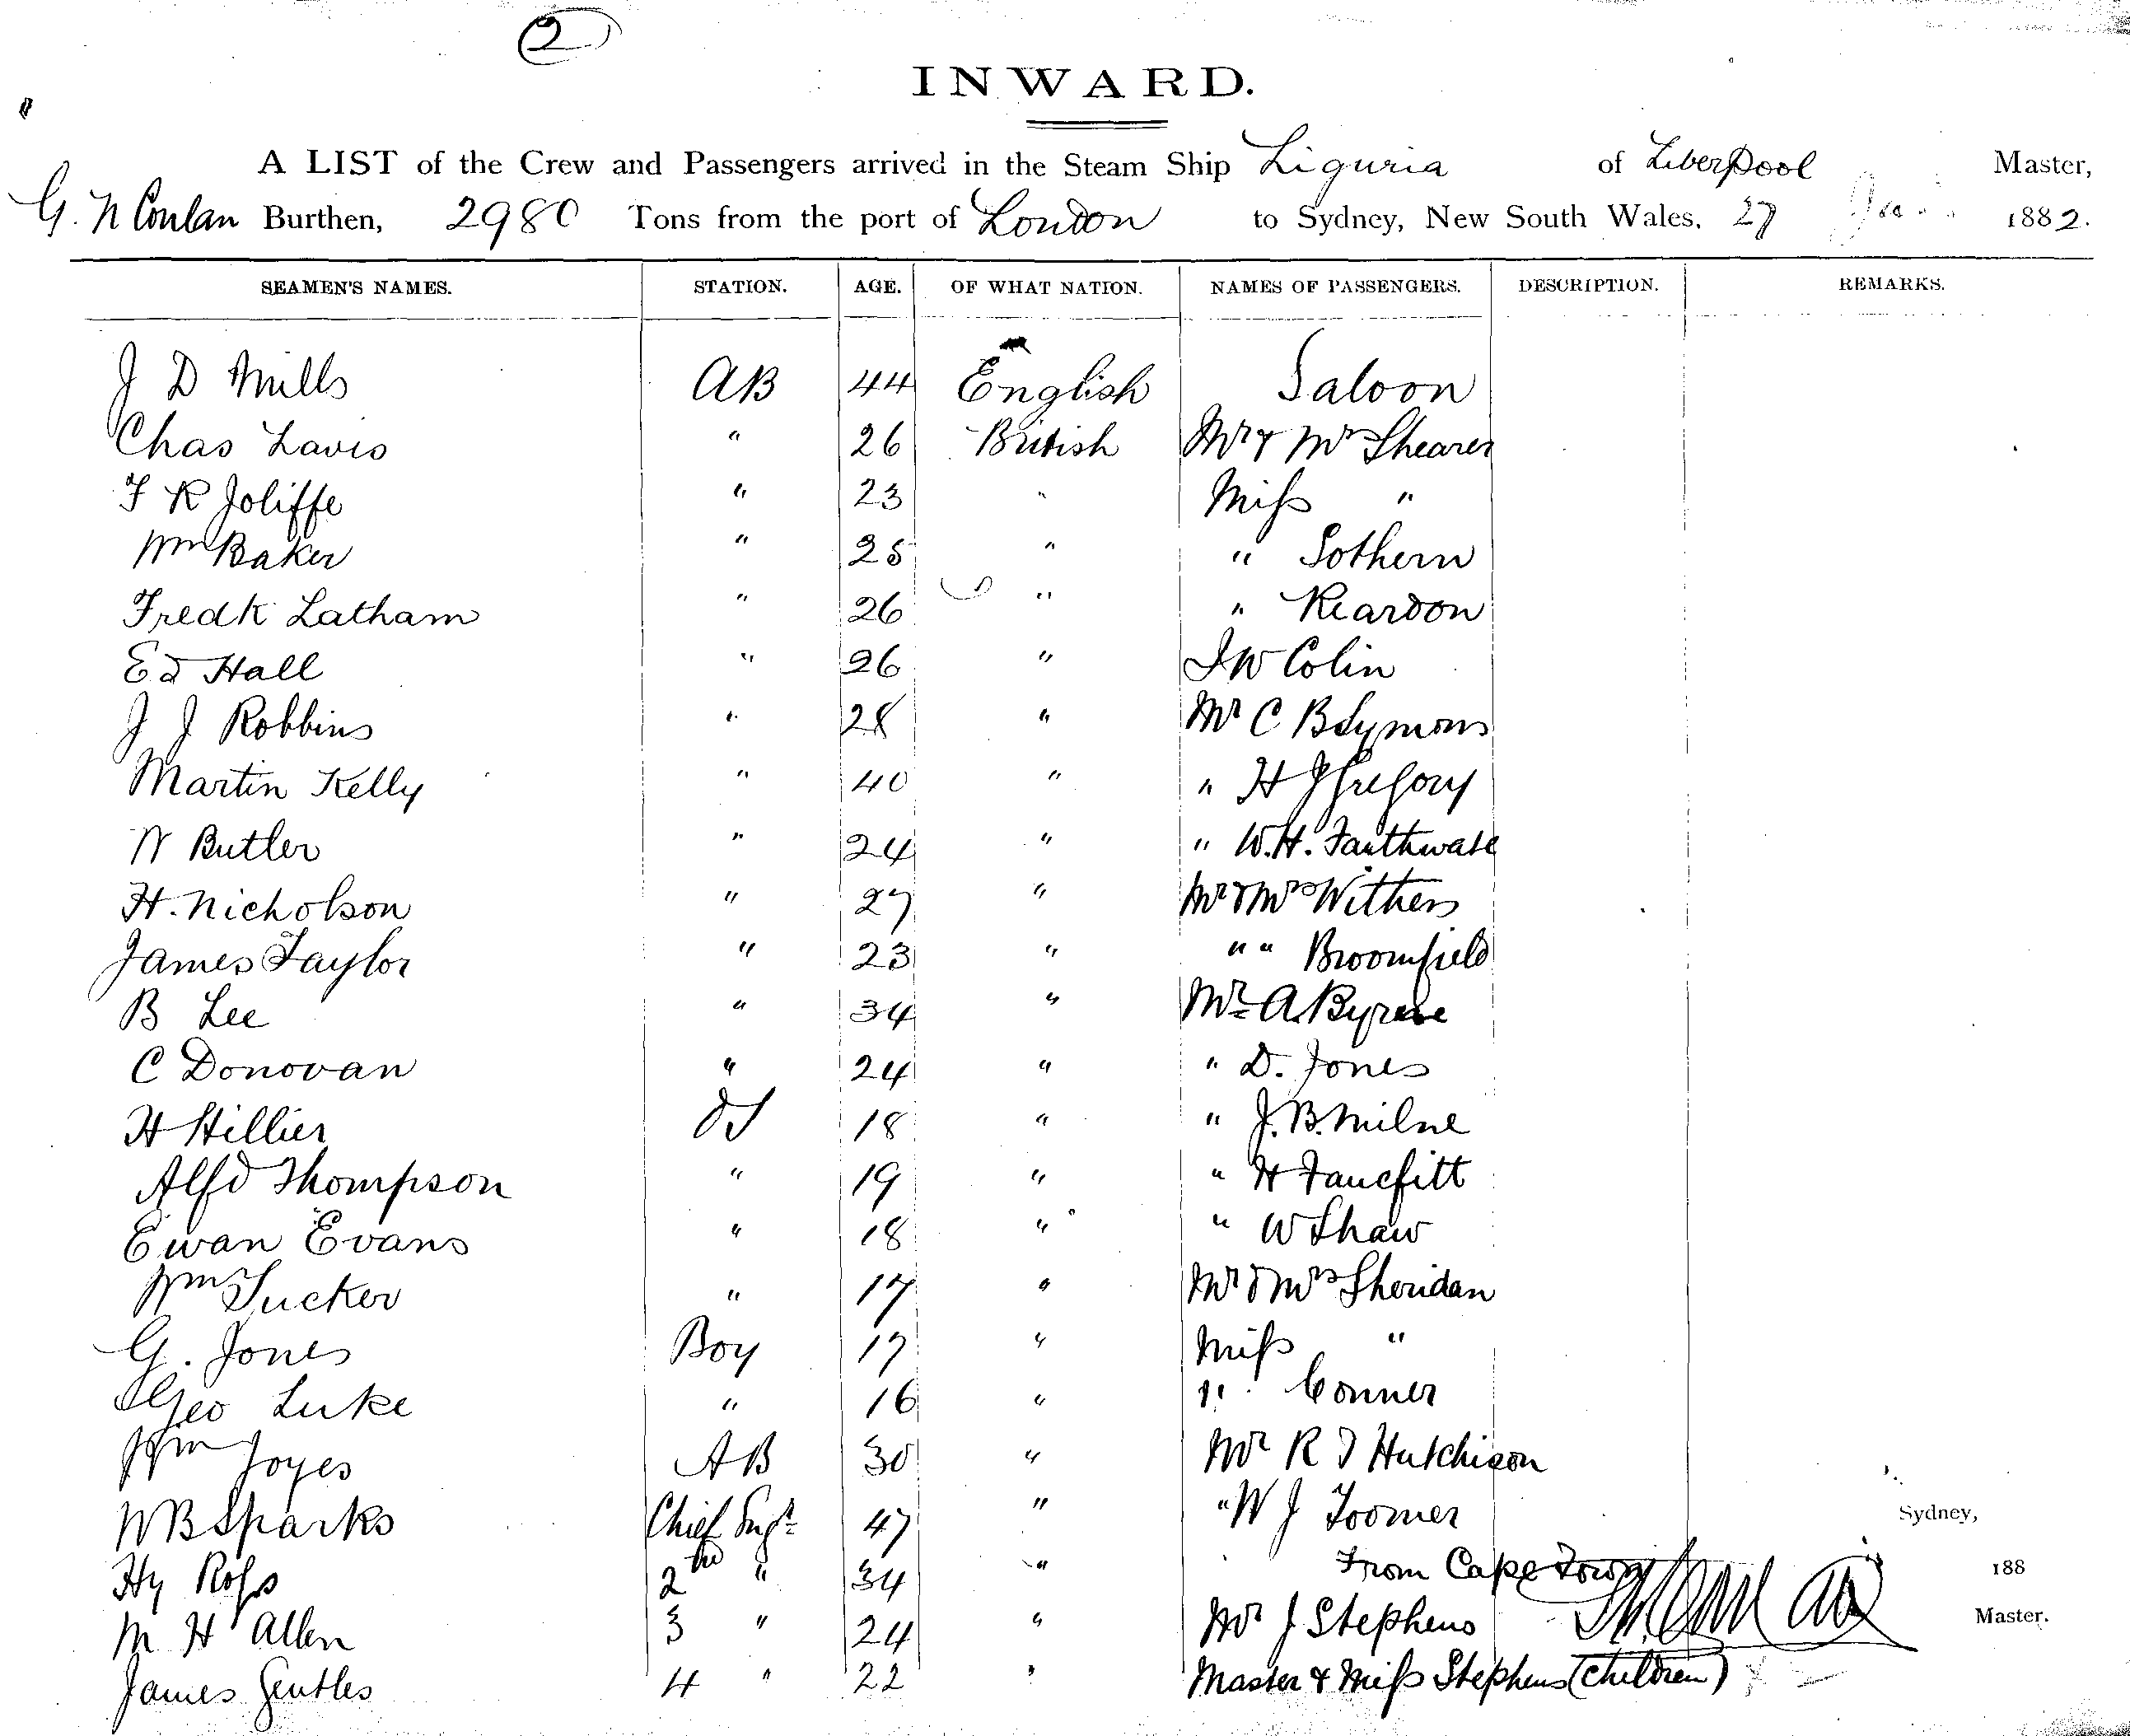 2
INWARD.
A LIST of the Crew and Passengers arrived in the Steam Ship Liguria of Liverpool Master,
G. N Conlan Burthen, 2980 Tons from the port of London to Sydney, New South Wales, 27 1882.
SEAMEN'S NAMES. STATION. AGE. OF WHAT NATION. NAMES OF PASSENGERS. DESCRIPTION. REMARKS.
J D Mills AB 44 English Saloon
Chas Lavis " 26 British Mr & Mrs Shearer
F R Joliffe " 23 " Miss "
Wm Baker " 25 " " Sothern
Fredk Latham " 26 " " Reardon
Ed Hall " 26 " J W Colin
J J Robbins " 28 " Mr C B Symons
Martin Kelly " 40 " " H J Gregory
W Butler " 24 " " W.H.
H. Nicholson " 27 " Mr & Mrs Withers
James Taylor " 23 " " " Broomfield
B Lee " 34 " Mr A. Byrene
C Donovan " 24 " " D. Jones
H Hillier OS 18 " " J.B. Milne
Alfd Thompson " 19 " " H
Ewan Evans " 18 " " W Shaw
Wm Tucker " 17 " Mr & Mrs Sheridan
G. Jones Boy 17 " Miss "
Geo Luke " 16 " " Conner
Wm Joyes AB 30 " Mr R J Hutchison
W B Sparks Chief Engr 47 " " W J Toomer
Sydney,
Hy Ross 2nd " 34 " From Cape Town
188
M H Allen 3 " 24 " Mr J Stephens
Master.
James Gentles 4 " 22 " Master & Miss Stephens (children)